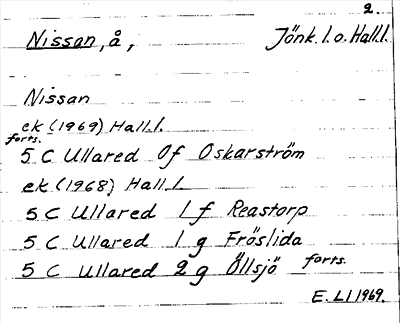 2.
Nissan, å, Jönk. l. o. Hall. l.
Nissan
ek (1969) Hall. l.
forts.
5 C Ullared 0f Oskarström
ek (1968) Hall. l.
5 C Ullared 1 f Reastorp
5 C Ullared 1 g Fröslida
5 C Ullared 2 g Öllsjö forts.
E. Ll 1969.